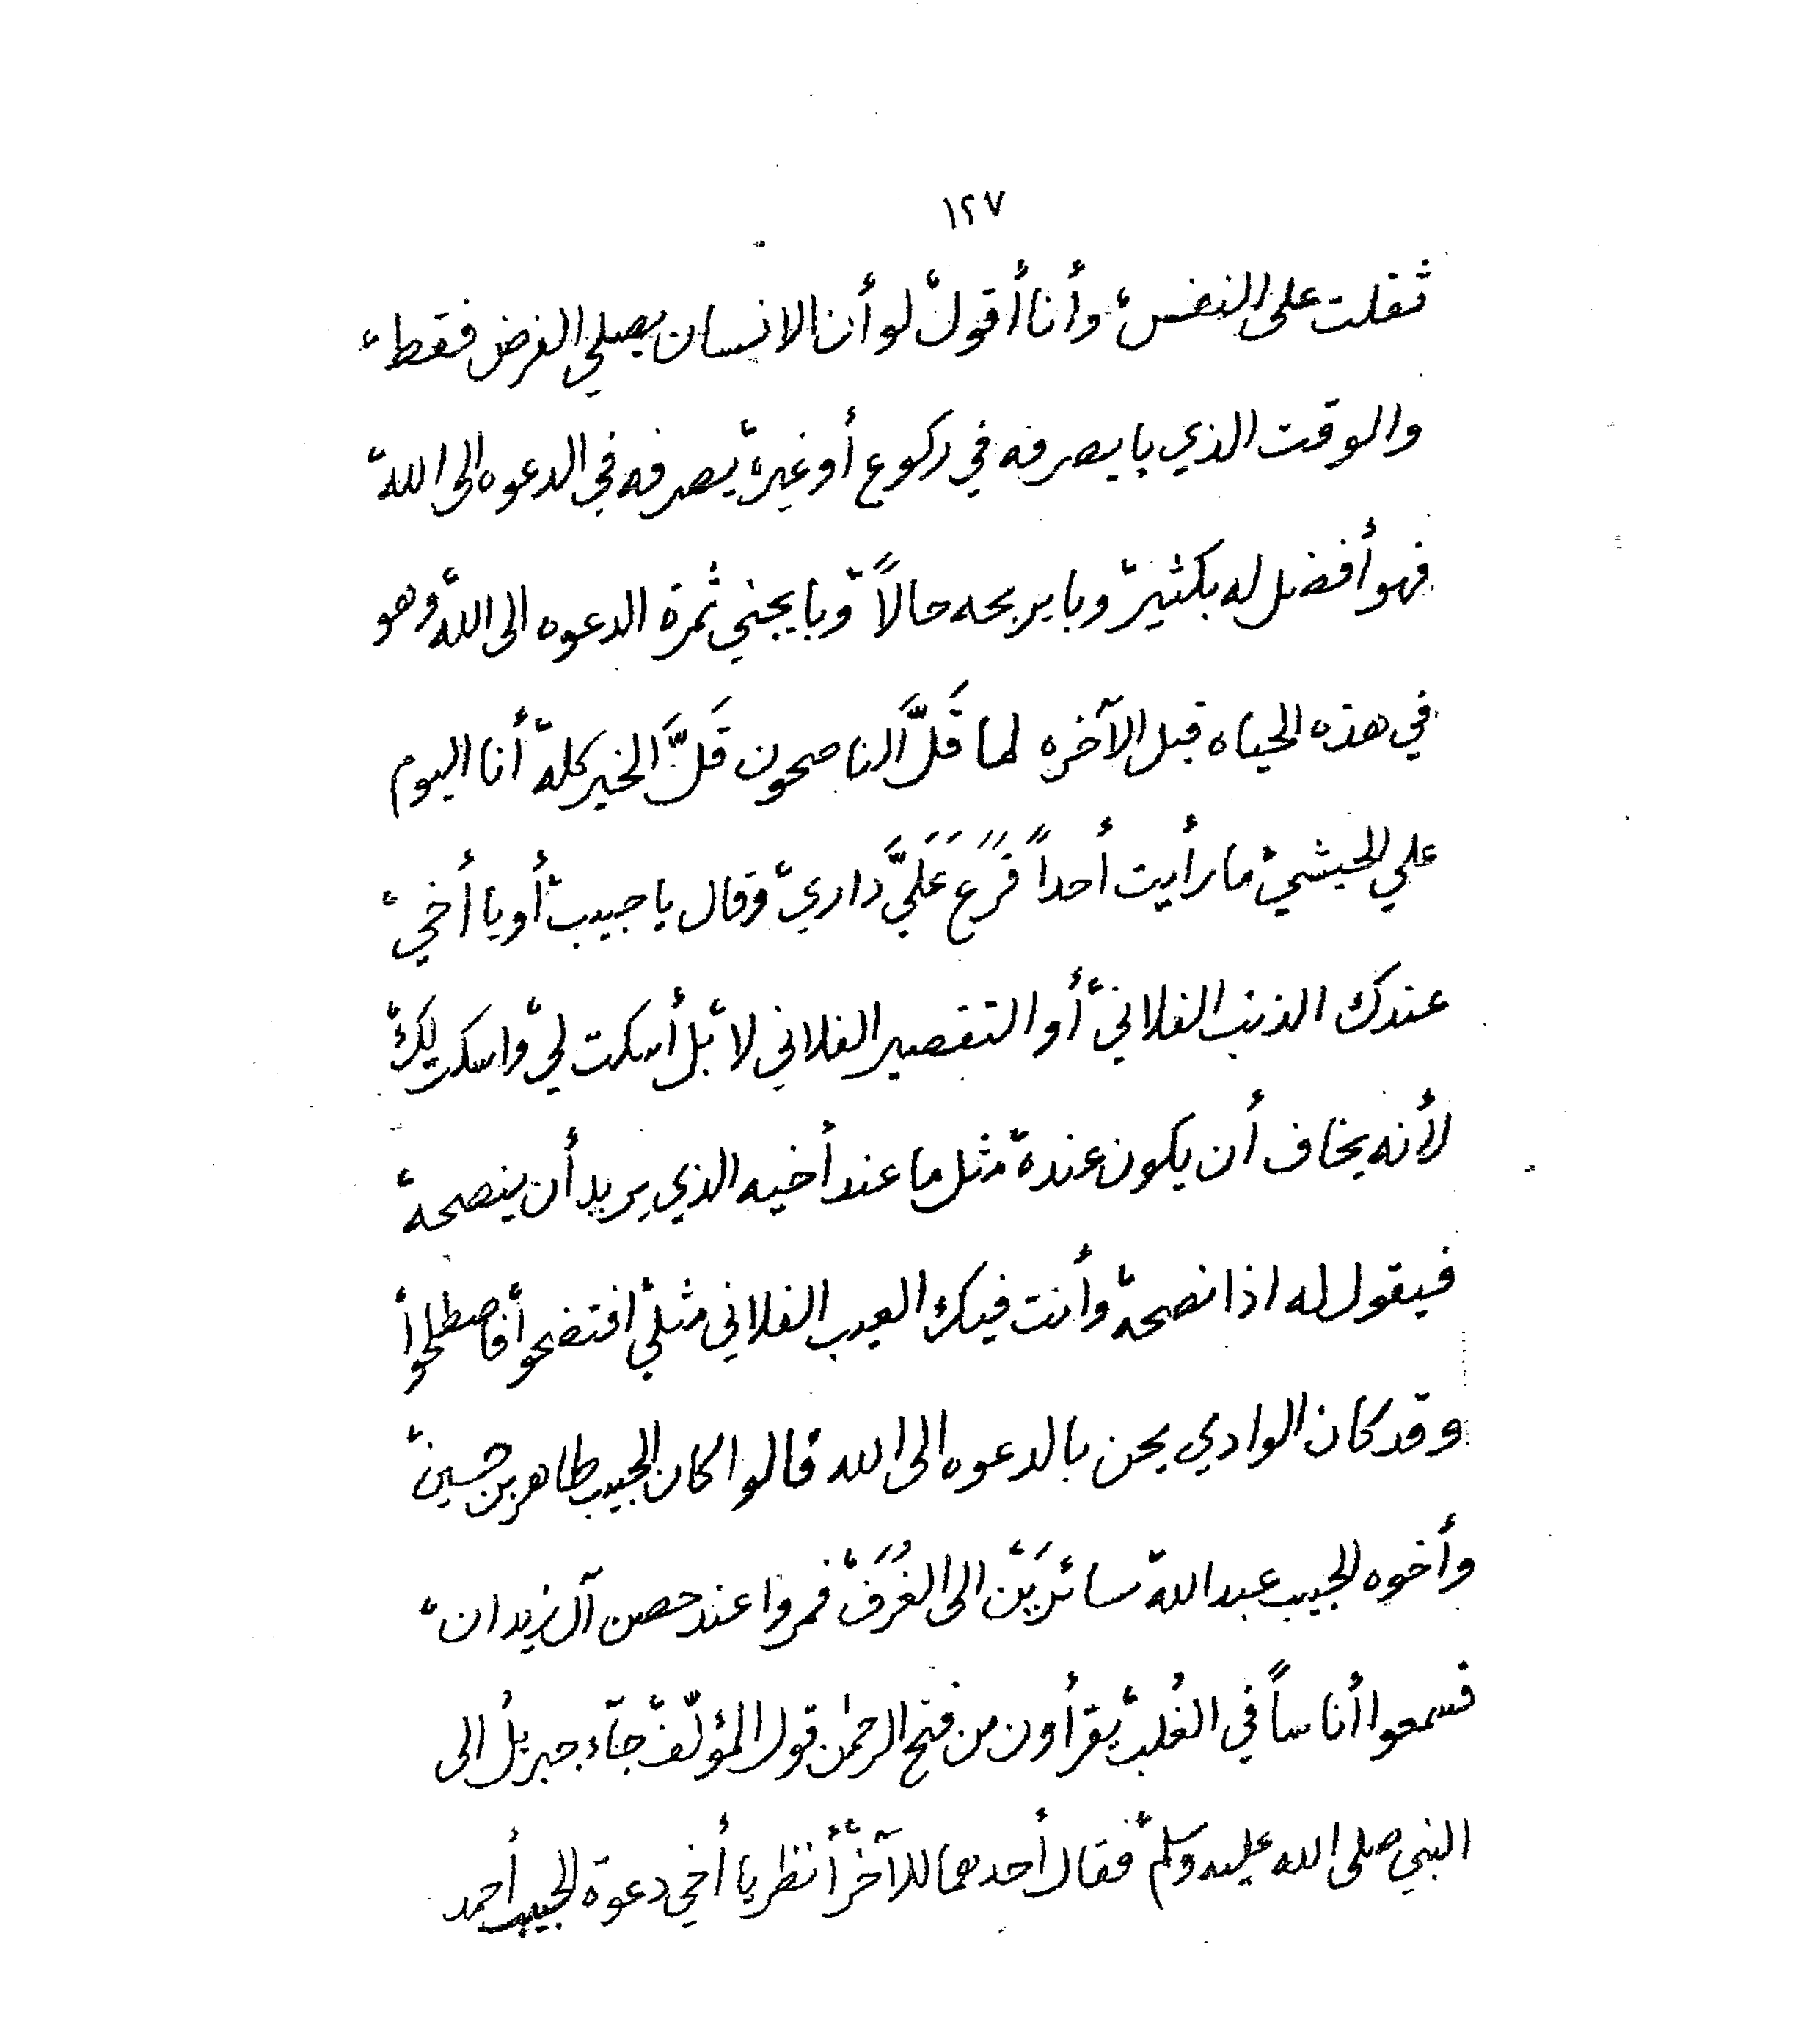 ١٢٧
ثقلت على النفس، وأنا أقول، لو أن الانسان يصلي الفرض فقط،
والوقت الذي بايصرفه في ركوع أو غيره، يصرفه في الدعوه الى الله،
فهو أفضل له بكثير، وبايربحه حالاً، وبايجني ثمرة الدعوه الى الله، وهو
في هذه الحياه قبل الآخره لما قَلَّ الناصحون قَلَّ الخير كله، أنا اليوم
علي الحبشي، ما رأيت أحداً فَرَّع عَلَيَّ داري، وقال يا حبيب، أو يا أخي،
عندك الذنب الفلاني، أو التقصير الفلاني لا، بل أسكت لي، واسكت لك،
لأنه يخاف أن يكون عنده، مثل ما عند أخيه الذي يريد أن ينصحه،
فيقول له اذا نصحه، وأنت فيك العيب الفلاني مثلي، افتضحوا، فاصطلحوا،
وقد كان الوادي يحن بالدعوه الى الله قالوا كان الحبيب طاهر بن حسين،
وأخوه الحبيب عبدالله، سائرَيْن الى الغُرَف، فمروا عند حصن آل زيدان،
فسمعوا أناساً في الغُلب، يقرأون من فتح الرحمٰن، قول المؤلّف، جآء جبريلُ الى
النبي صلى الله عليه وسلم، فقال أحدهما للآخر، أنظر يا أخي دعوة الحبيب أحمد